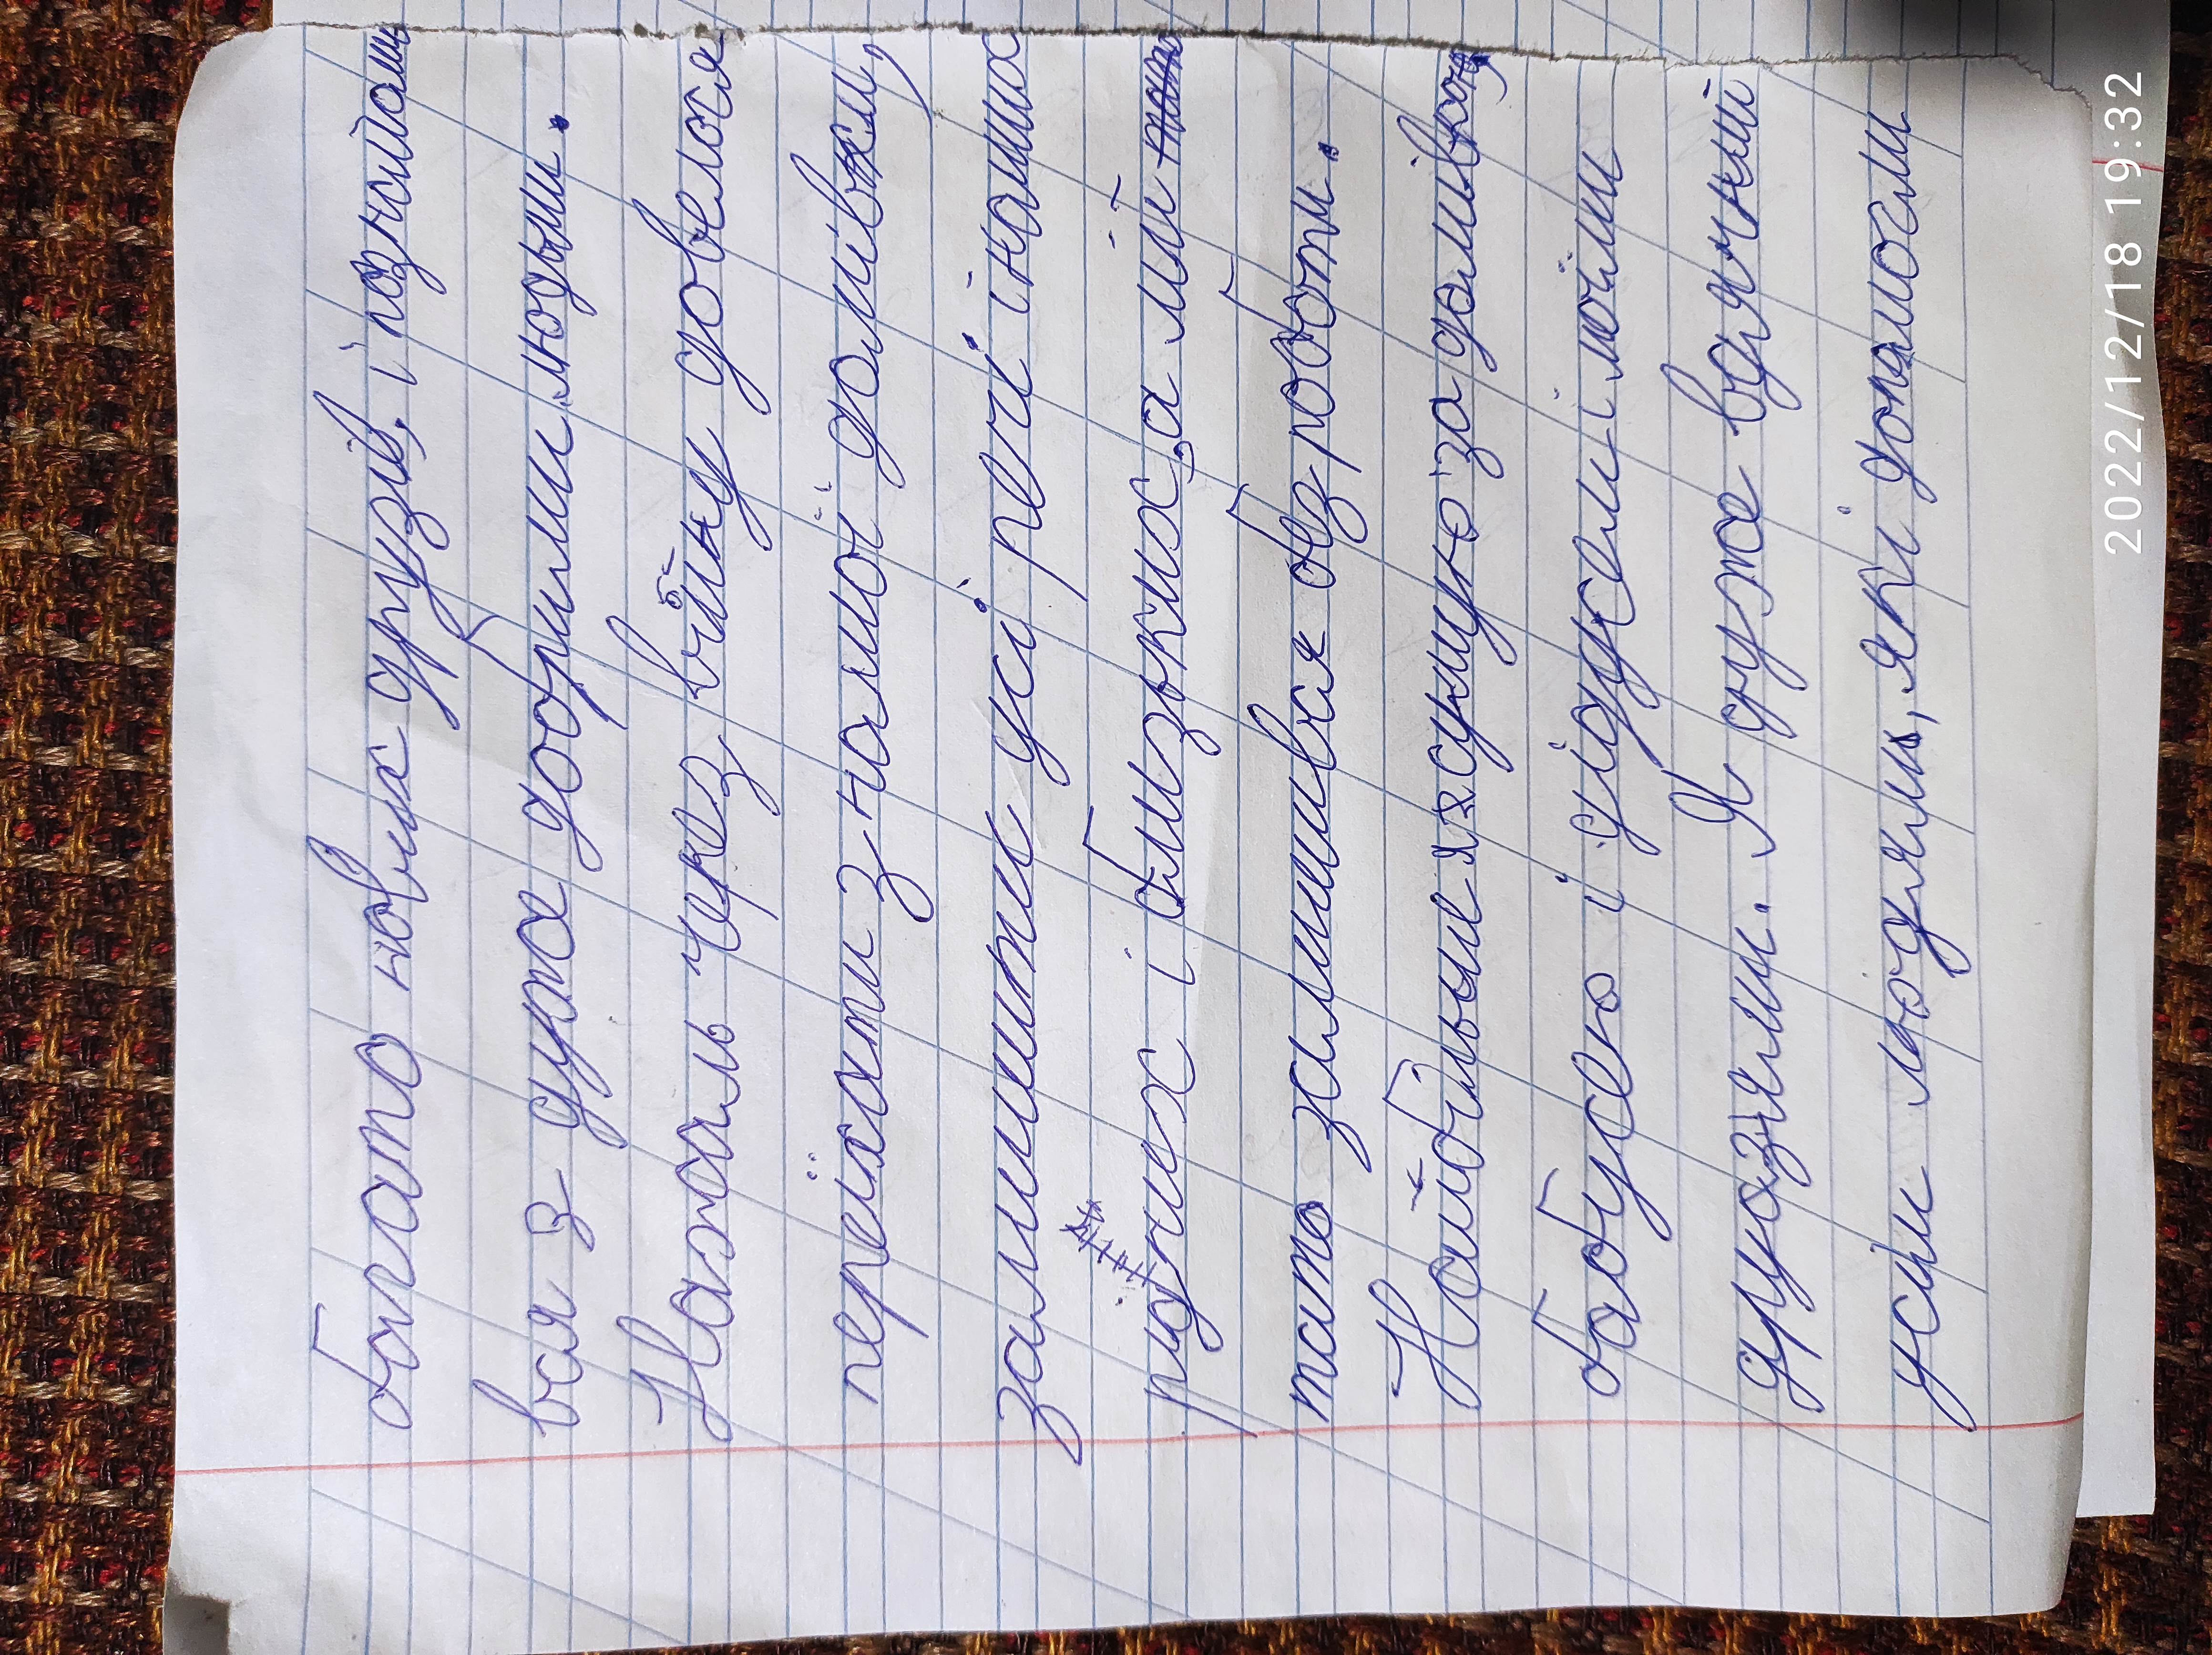 багато нових друзів, і познайоми
вся з дуже добрими людьми.
Нажаль через війну довелося
переїхати з нашої домівки,
залишити усі речі і наших
рідних і близьких, а мій тато
тато залишився без роботи.
Найбільше я сумую за домівкою,
бабусею і дідусем і моїми
друзями. Я дуже вдячний
усім людям, які допомогли
2022/12/18 19:32